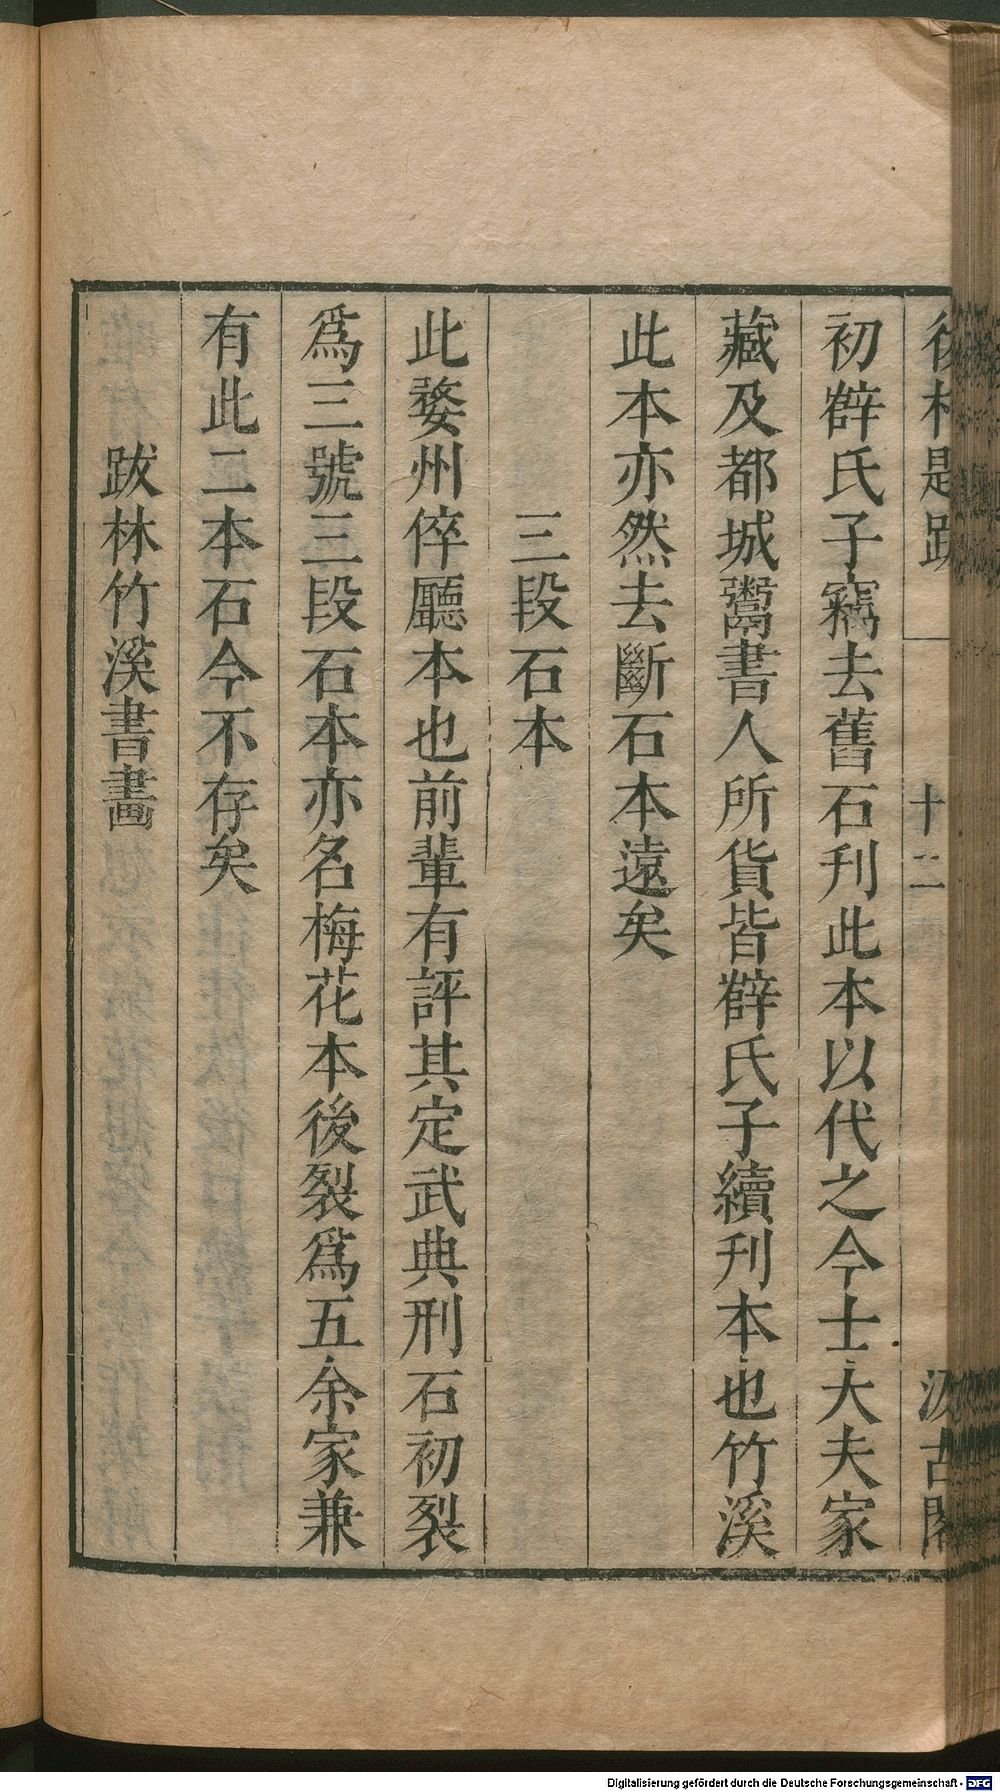 後村題跋 十二 汲古閣
初薛氏子竊去舊石刊此本以代之今士大夫家
藏及都城鬻書人所貨皆薛氏子續刊本也竹溪
此本亦然去斷石本遠矣
三段石本
此婺州倅廳本也前輩有評其定武典刑石初裂
爲三號三段石本亦名梅花本後裂爲五余家兼
有此二本石今不存矣
跋林竹溪書畫
Digitalisierung gefördert durch die Deutsche Forschungsgemeinschaft - DFG